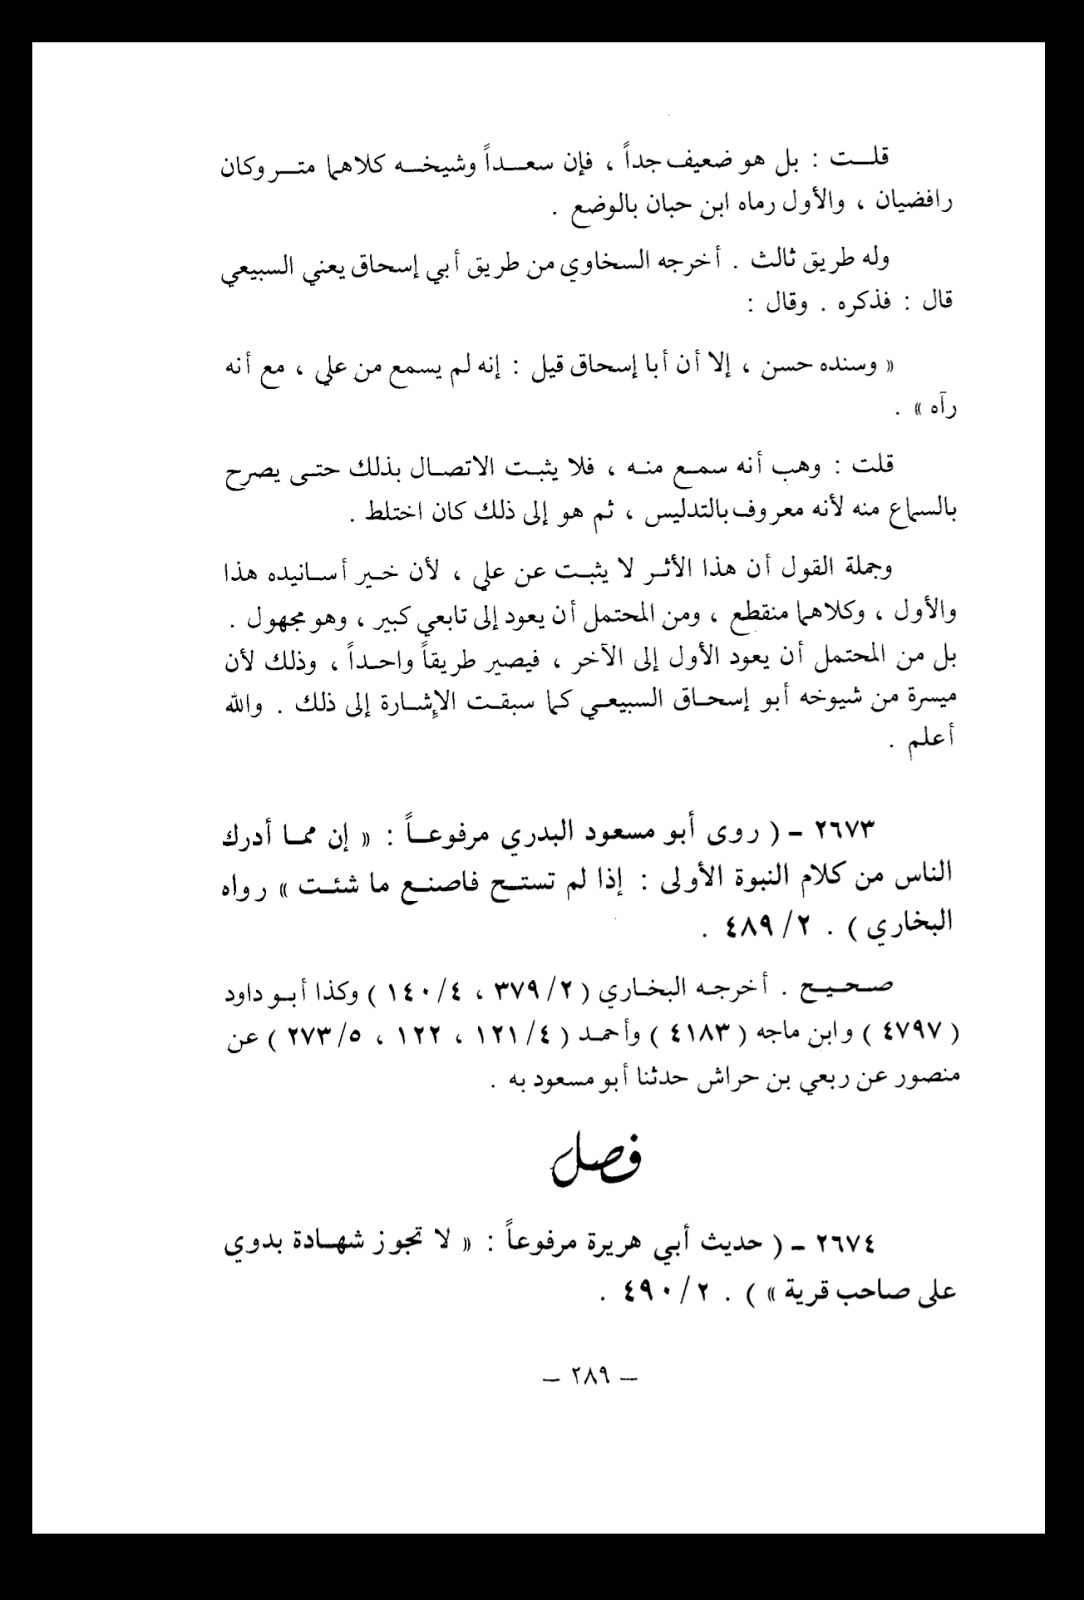 قلت : بل هو ضعيف جداً ، فإن سعداً وشيخه كلاهما متروكان
رافضيان ، والأول رماه ابن حبان بالوضع .
وله طريق ثالث . أخرجه السخاوي من طريق أبي إسحاق يعني السبيعي
قال : فذكره . وقال :
« وسنده حسن ، إلا أن أبا إسحاق قيل : إنه لم يسمع من علي ، مع أنه
رآه » .
قلت : وهب أنه سمع منه ، فلا يثبت الاتصال بذلك حتى يصرح
بالسماع منه لأنه معروف بالتدليس ، ثم هو إلى ذلك كان اختلط .
وجملة القول أن هذا الأثر لا يثبت عن علي ، لأن خير أسانيده هذا
والأول ، وكلاهما منقطع ، ومن المحتمل أن يعود إلى تابعي كبير ، وهو مجهول .
بل من المحتمل أن يعود الأول إلى الآخر ، فيصير طريقاً واحداً ، وذلك لأن
ميسرة من شيوخه أبو إسحاق السبيعي كما سبقت الإشارة إلى ذلك . والله
أعلم .
٢٦٧٣ - ( روى أبو مسعود البدري مرفوعاً : « إن مما أدرك
الناس من كلام النبوة الأولى : إذا لم تستح فاصنع ما شئت » رواه
البخاري ) . ٢/ ٤٨٩ .
صحيح . أخرجه البخاري ( ٢/ ٣٧٩ ، ٤/ ١٤٠ ) وكذا أبو داود
( ٤٧٩٧ ) وابن ماجه ( ٤١٨٣ ) وأحمد ( ٤/ ١٢١ ، ١٢٢ ، ٥/ ٢٧٣ ) عن
منصور عن ربعي بن حراش حدثنا أبو مسعود به .
فصل
٢٦٧٤ - ( حديث أبي هريرة مرفوعاً : « لا تجوز شهادة بدوي
على صاحب قرية » ) . ٢/ ٤٩٠ .
- ٢٨٩ -